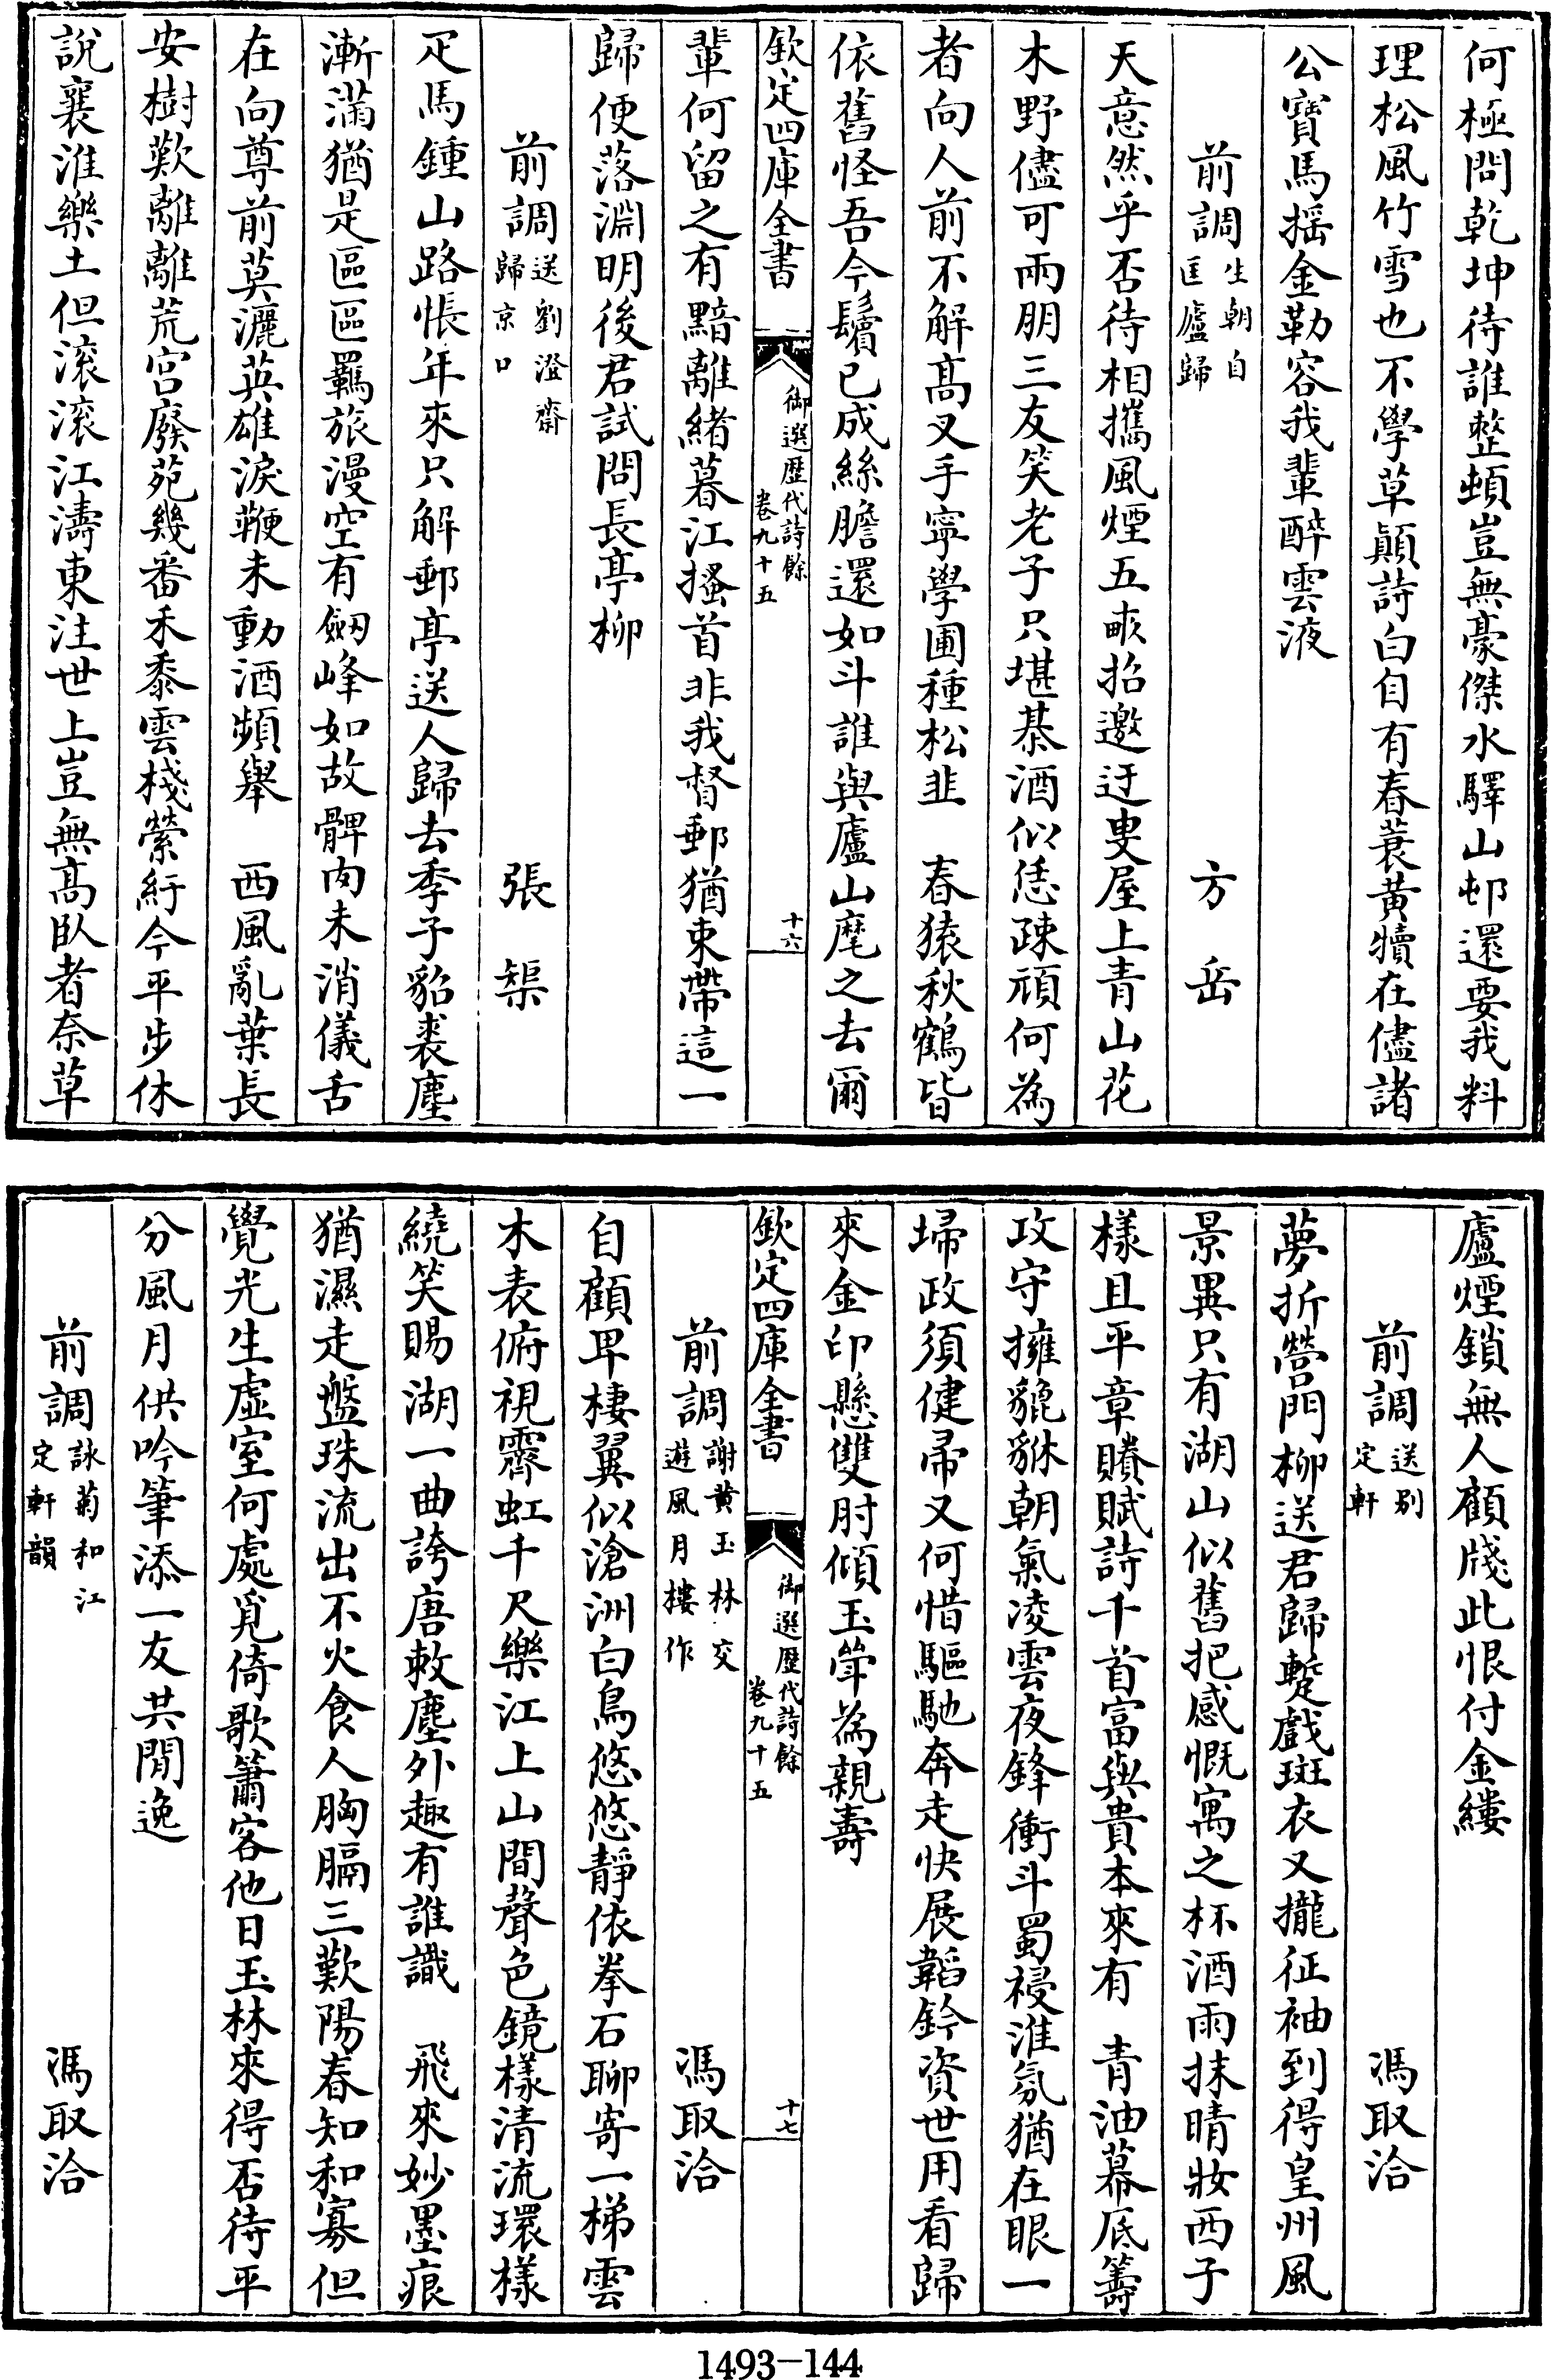 何極問乾坤待誰整頓豈無豪傑水驛山邨還要我料
理松風竹雪也不學草顛詩白自有春蓑黃犢在儘諸
公寶馬揺金勒容我輩醉雲液
前調生朝自匡廬歸 方岳
天意然乎否待相攜風煙五畝招邀迂叟屋上青山花
木野儘可兩朋三友笑老子只堪棊酒似恁疎頑何為
者向人前不解髙叉手寧學圃種松韭 春猿秋鶴皆
依舊怪吾今鬚已成絲膽還如斗誰與廬山麾之去爾
欽定四庫全書 御選歷代詩餘卷九十五 十六
輩何留之有黯離緒暮江搔首非我督郵猶束帶這一
歸便落淵明後君試問長亭柳
前調送劉澄齋歸京口 張榘
疋馬鍾山路悵年來只解郵亭送人歸去季子貂裘塵
漸滿猶是區區羈旅漫空有劒峰如故髀肉未消儀舌
在向尊前莫灑英雄淚鞭未動酒頻舉 西風亂葉長
安樹歎離離荒宮廢苑幾番禾黍雲棧縈紆今平步休
說襄淮樂土但滾滾江濤東注世上豈無髙臥者奈草
廬煙鎖無人顧牋此恨付金縷
前調送别定軒 馮取洽
夢折營門柳送君歸蹔戲斑衣又攏征袖到得皇州風
景異只有湖山似舊把感慨寓之杯酒雨抹晴妝西子
樣且平章賸賦詩千首富與貴本來有 青油幕底籌
攻守擁貔貅朝氣凌雲夜鋒衝斗蜀祲淮氛猶在眼一
埽政須健帚又何惜驅馳奔走快展韜鈐資世用看歸
來金印懸雙肘傾玉斝為親壽
欽定四庫全書 御選歷代詩餘卷九十五 十七
前調謝黄玉林交遊風月樓作 馮取洽
自顧卑棲翼似滄洲白鳥悠悠靜依拳石聊寄一梯雲
木表俯視霽虹千尺樂江上山間聲色鏡樣清流環樣
繞笑賜湖一曲誇唐敕塵外趣有誰識 飛來妙墨痕
猶濕走盤珠流出不火食人胸膈三歎陽春知和寡但
覺光生虚室何處覓倚歌簫客他日玉林來得否待平
分風月供吟筆添一友共閒逸
前調詠菊和江定軒韻 馮取洽
1493-144